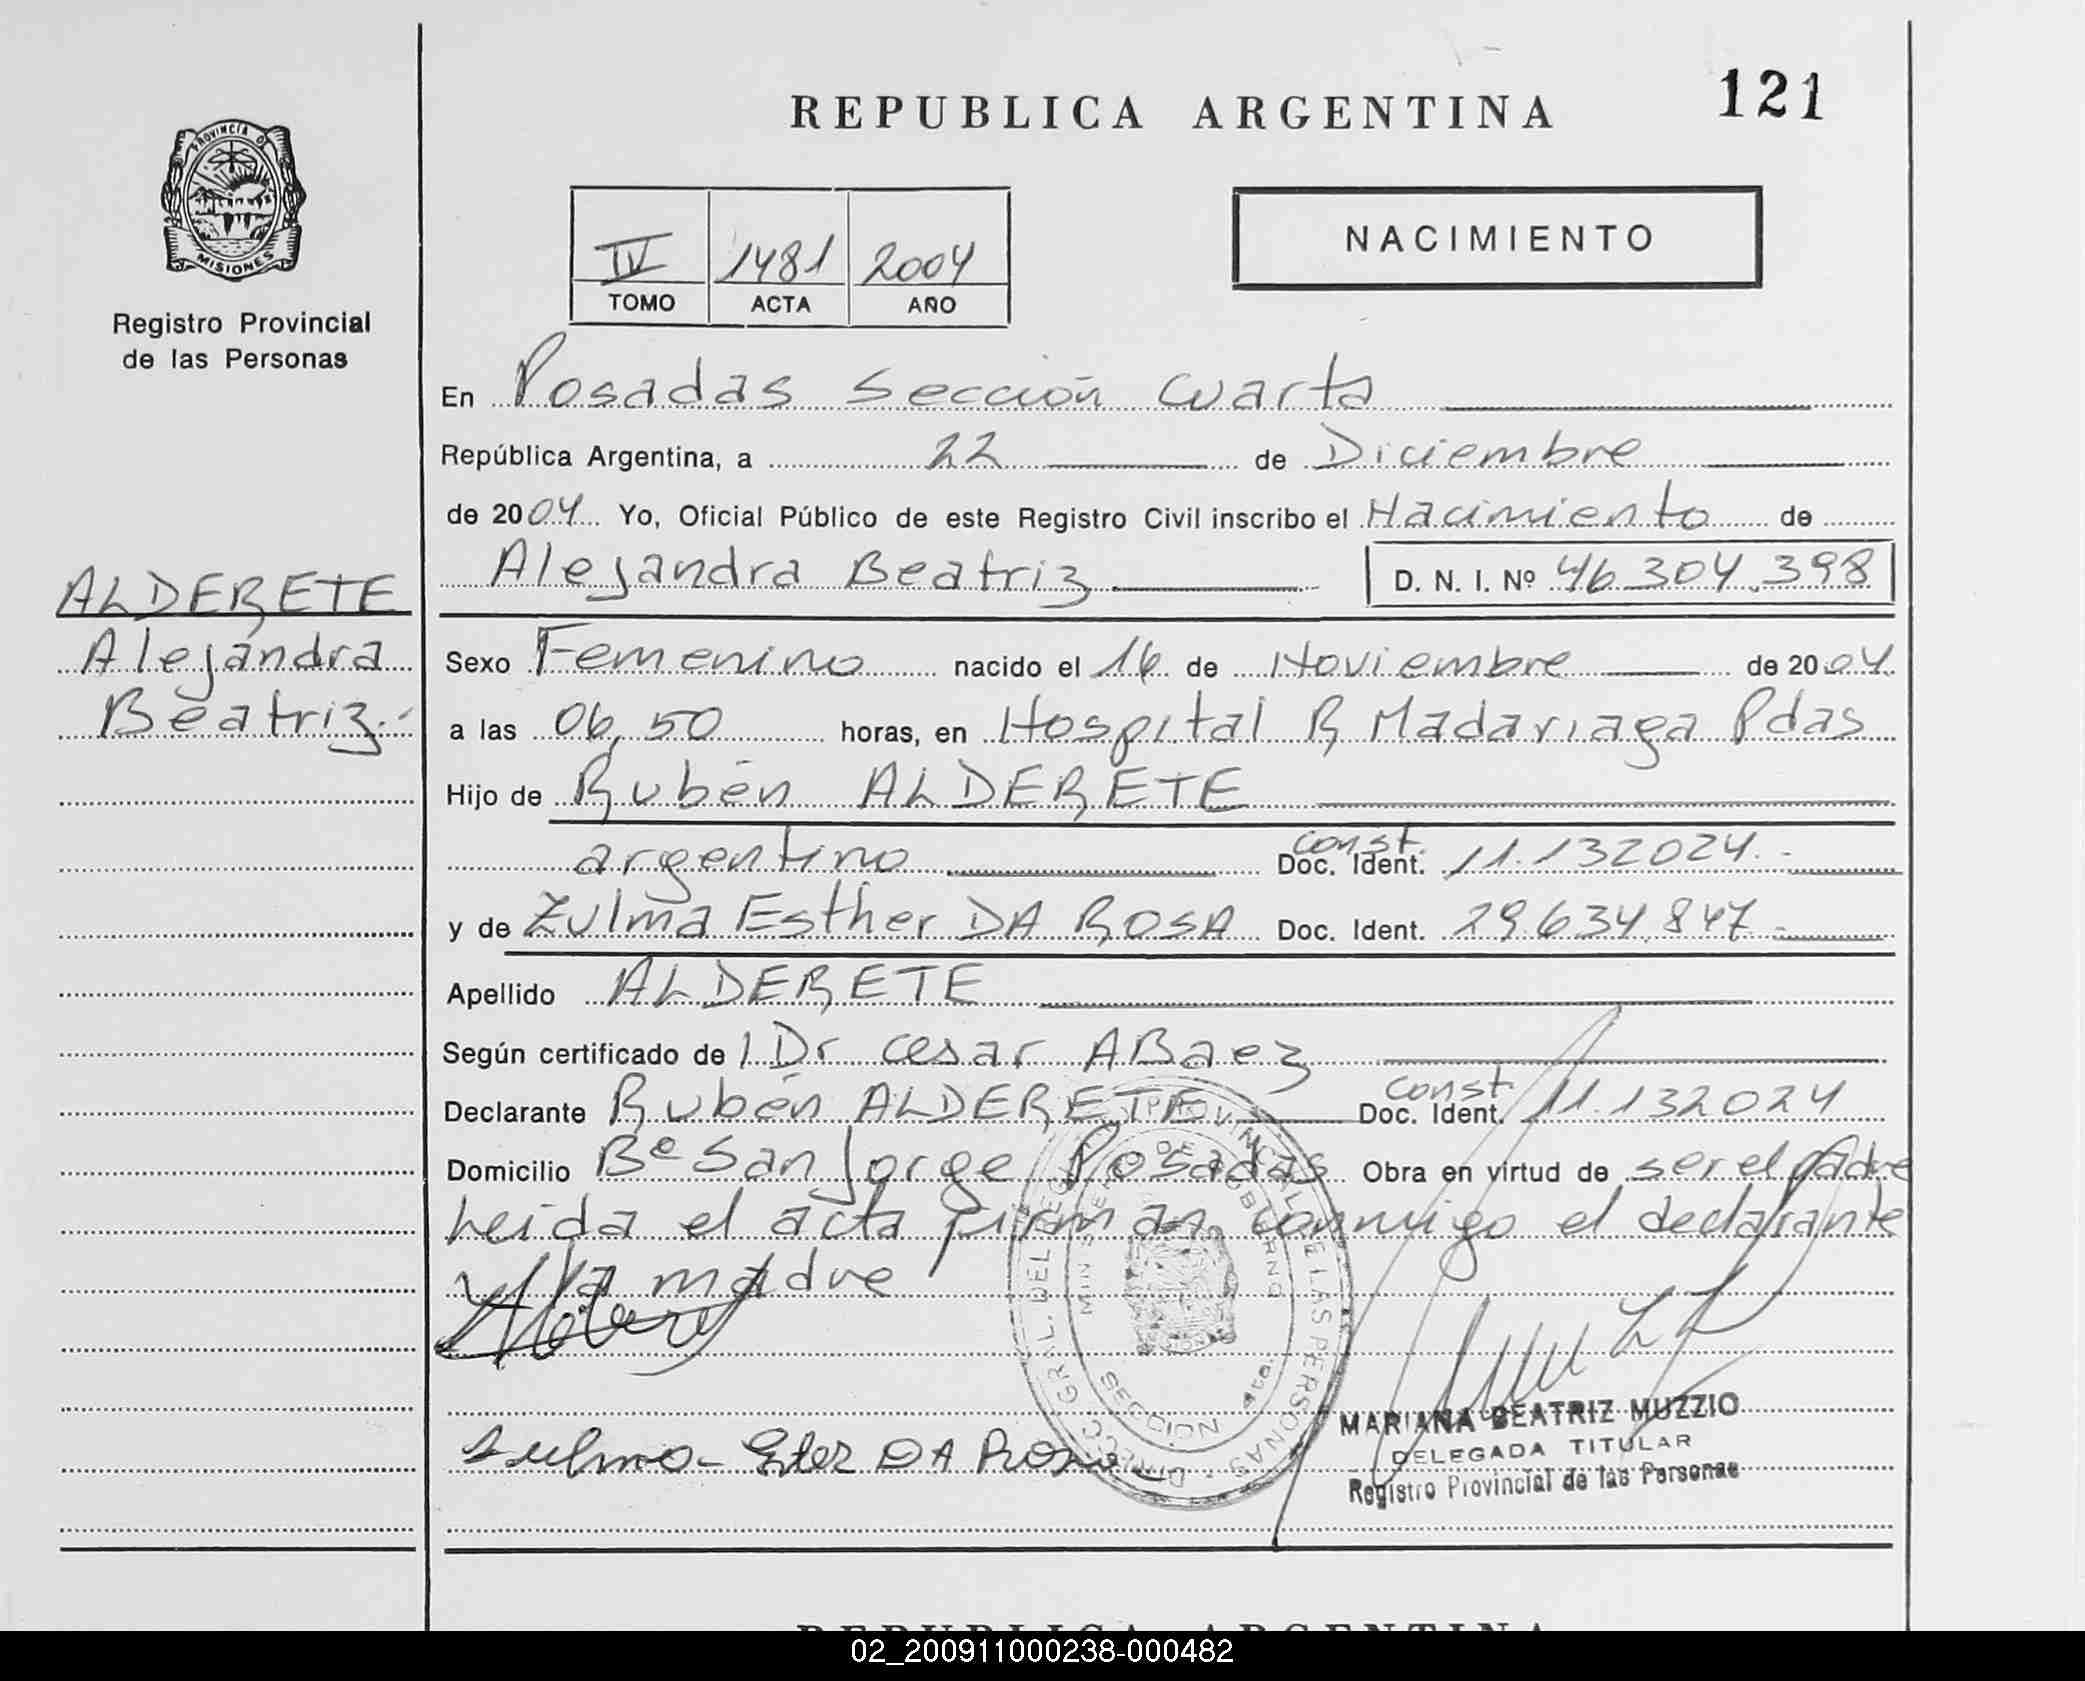 REPUBLICA ARGENTINA
121
PROVINCIA DE
MISIONES
Registro Provincial
de las Personas
IV 1481 2004
TOMO ACTA AÑO
NACIMIENTO
En Posadas Sección Cuarta
República Argentina, a 22 de Diciembre
de 2004 Yo, Oficial Público de este Registro Civil inscribo el Nacimiento de
Alejandra Beatriz D. N. I. Nº 46.304.398
ALDERETE
Alejandra
Beatriz.-
Sexo Femenino nacido el 16 de Noviembre de 2004
a las 06,50 horas, en Hospital R Madariaga Pdas
Hijo de Rubén ALDERETE
argentino const. Doc. Ident. 11.132024.-
y de Zulma Esther DA ROSA Doc. Ident. 29.634.847.-
Apellido ALDERETE
Según certificado de Dr Cesar A Baez
Declarante Rubén ALDERETE const. Doc. Ident. 11.132024
Domicilio Bº San Jorge Posadas Obra en virtud de ser el padre
Leida el acta firman conmigo el declarante
y la madre
Zulma - Ester DA Rosa
DIRECC. GRAL. DEL REG. PROVINCIAL DE LAS PERSONAS
MINISTERIO DE GOBIERNO
SECCION 4ta.
MARIANA BEATRIZ MUZZIO
DELEGADA TITULAR
Registro Provincial de las Personas
REPUBLICA ARGENTINA
02_200911000238-000482